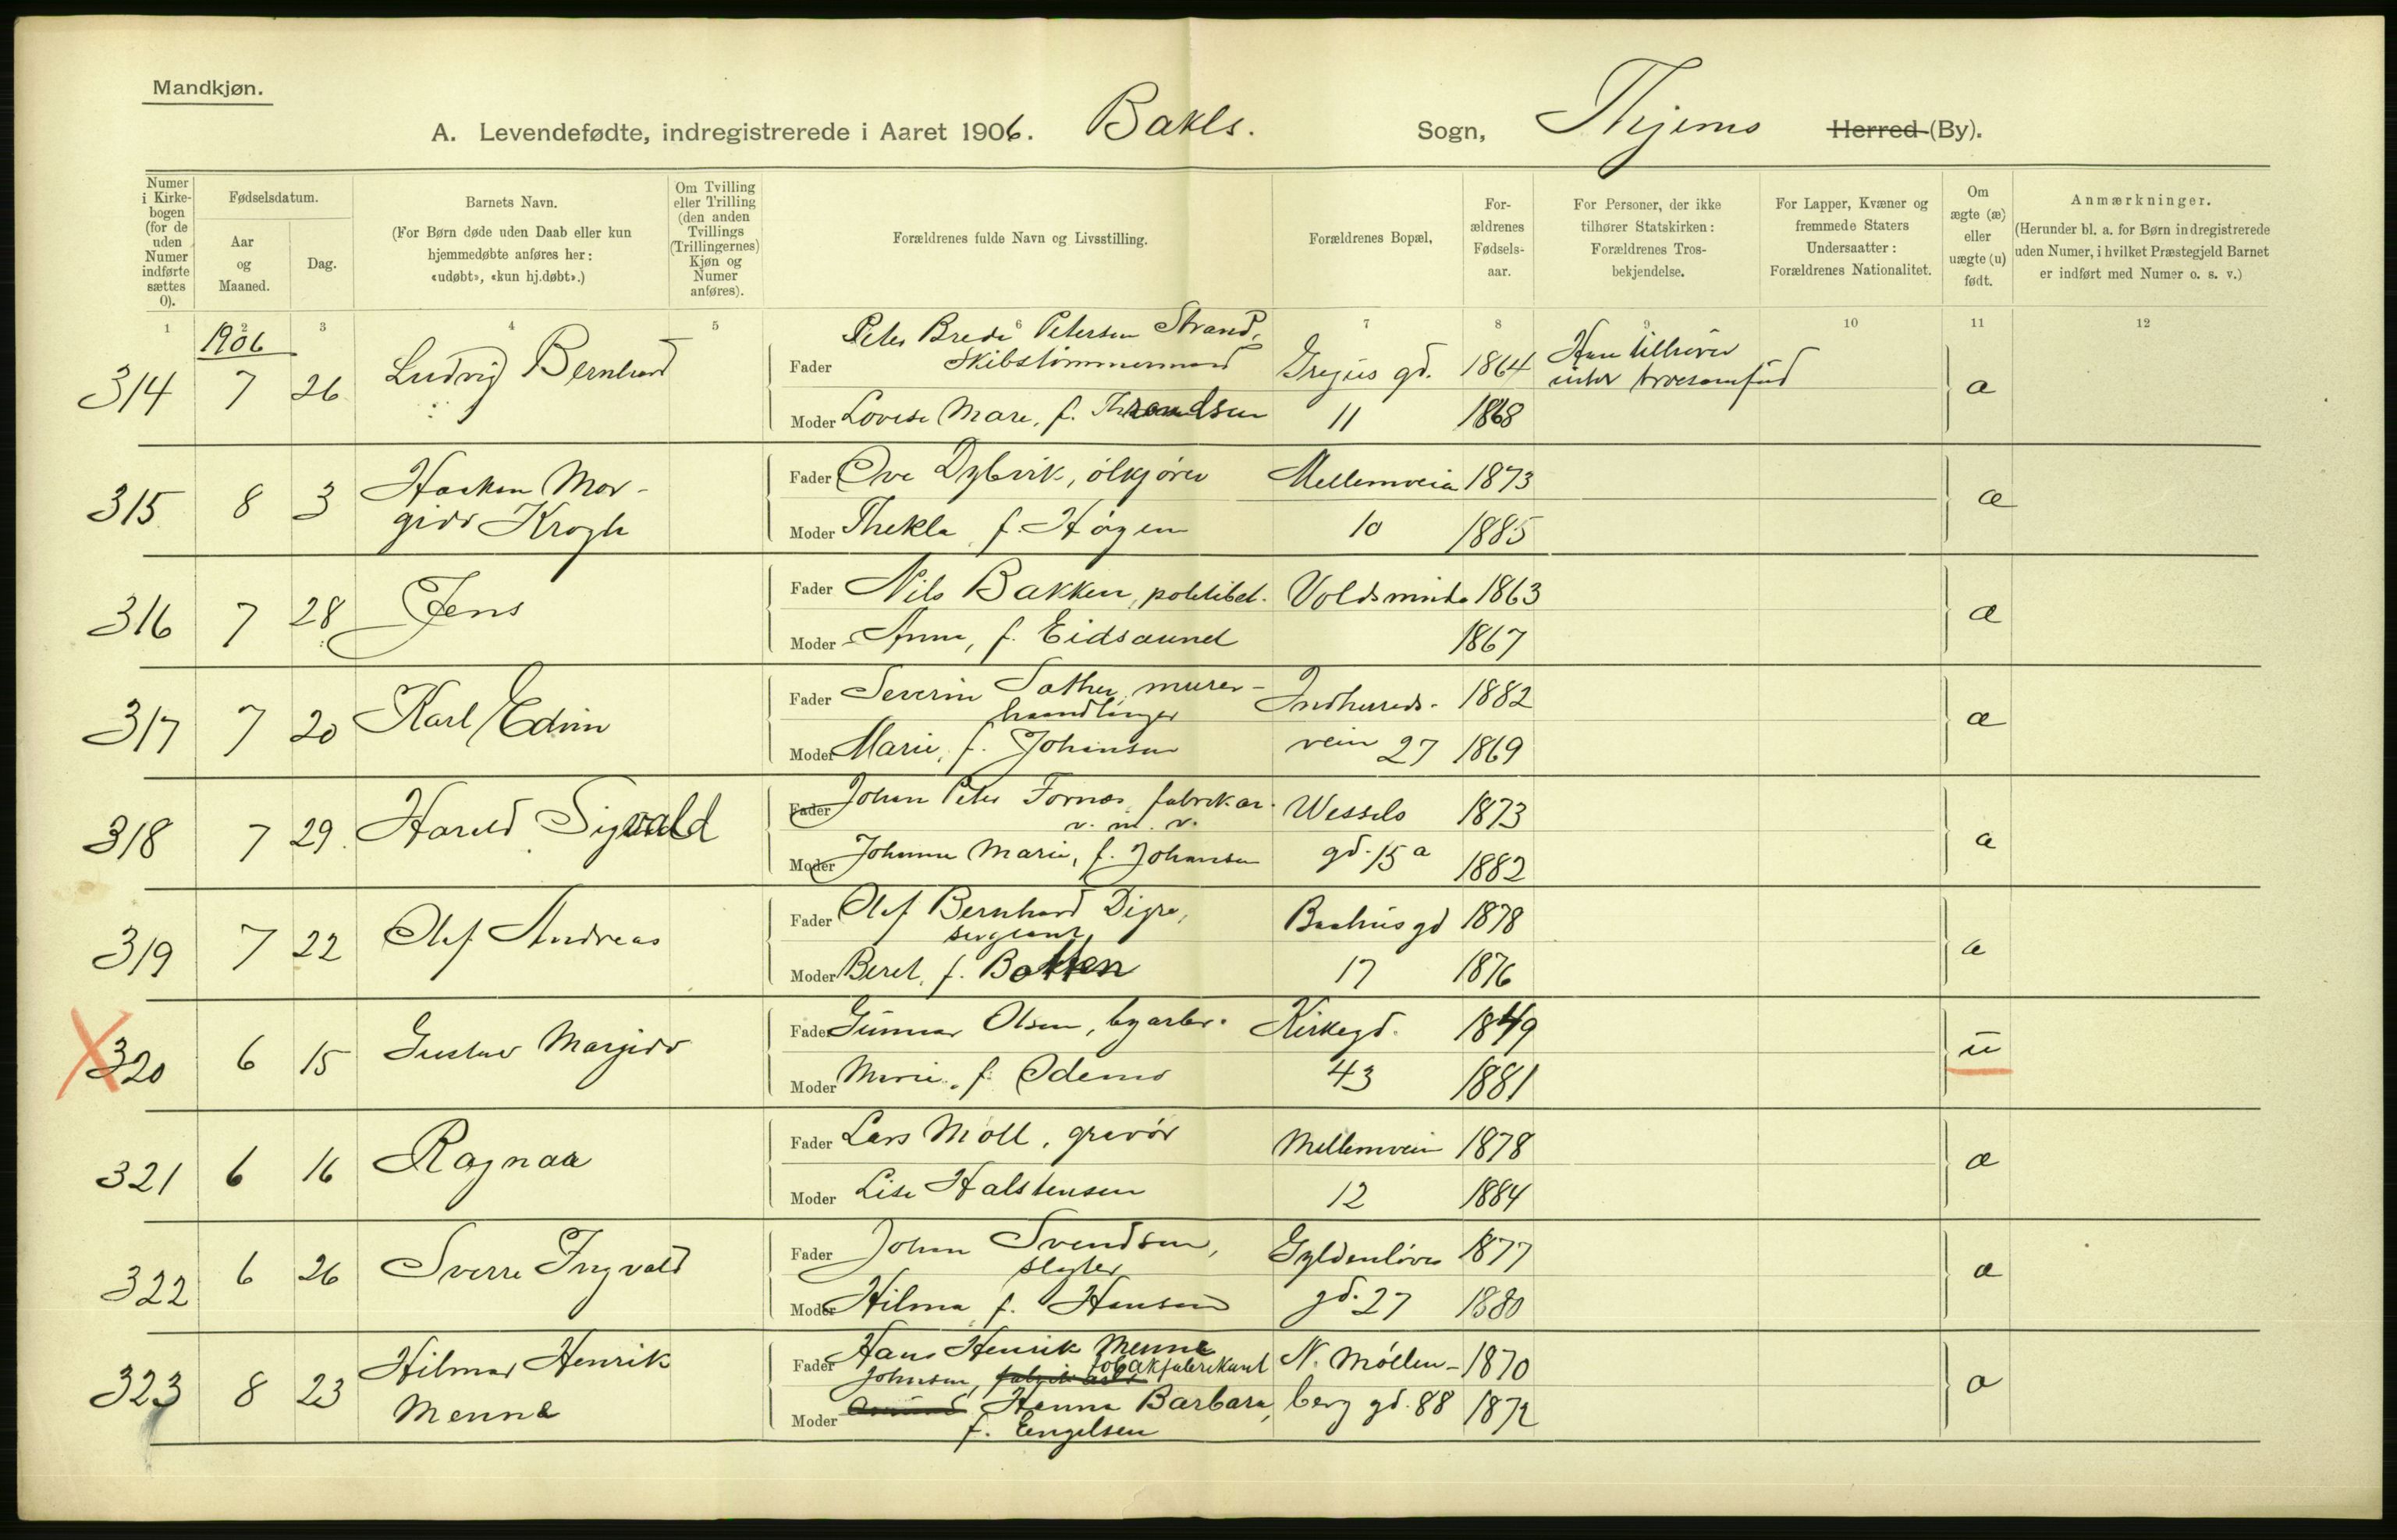 Mandkjøn.
A. Levendefødte, indregistrerede i Aaret 1906. Bakls. Sogn, Thjems Herred (By).
Numer i Kirkebogen (for de uden Numer indførte sættes 0).
Fødselsdatum.
Aar og Maaned.
Dag.
Barnets Navn.
(For Børn døde uden Daab eller kun hjemmedøbte anføres her: «udøbt», «kun hj.døbt».)
Om Tvilling eller Trilling (den anden Tvillings (Trillingernes) Kjøn og Numer anføres).
Forældrenes fulde Navn og Livsstilling.
Forældrenes Bopæl,
Forældrenes Fødselsaar.
For Personer, der ikke tilhører Statskirken: Forældrenes Trosbekjendelse.
For Lapper, Kvæner og fremmede Staters Undersaatter: Forældrenes Nationalitet.
Om ægte (æ) eller uægte (u) født.
Anmærkninger.
(Herunder bl. a. for Børn indregistrerede uden Numer, i hvilket Præstegjeld Barnet er indført med Numer o. s. v.)
1 2 3 4 5 6 7 8 9 10 11 12
1906
314 7 26 Ludvig Bernhard
Fader Peter Brede Petersen Strand,
Skibstømmermand Grejus gd. 1864 Han tilhører
intet troessamfund æ
Moder Lovise Mare, f. Throndsen 11 1868
315 8 3 Haakon Mar-
gido Krogh
Fader Ove Dybvik, ølkjører Mellemveien 1873 æ
Moder Thekla f. Høgen 10 1885
316 7 28 Jens
Fader Nils Bakken, politibet. Voldsminde 1863 æ
Moder Anna, f. Eidsaunet 1867
317 7 20 Karl Edvin
Fader Severin Sather, murer-
haandlanger Indherreds- 1882 æ
Moder Marie, f. Johansen veien 27 1869
318 7 29 Harald Sigvald
Fader Johan Peter Fornæs, fabrikar. Wessels 1873 æ
v. m. v.
Moder Johanne Marie, f. Johansen gd. 15 a 1882
319 7 22 Olaf Andreas
Fader Olaf Bernhard Digre,
sergeant Baahus gd 1878 æ
Moder Beret, f. Bakken 17 1876
320 6 15 Gustav Margido
Fader Gunnar Olsen, byarb. Kirkegd. 1849 u
Moder Marie, f. Odemo 43 1881
321 6 16 Ragnar
Fader Lars Moll, gravør Mellemveien 1878 æ
Moder Lise Halstensen 12 1884
322 6 26 Sverre Ingvald
Fader Johan Svendsen,
slagter Gyldenløves 1877 æ
Moder Hilma f. Hansen gd. 27 1880
323 8 23 Hilmar Henrik
Menne
Fader Hans Henrik Menne
Johnsen, tobakfabrikant N. Møllen- 1870 æ
Moder Hanna Barbara, berg gd. 88 1872
f. Engelsen